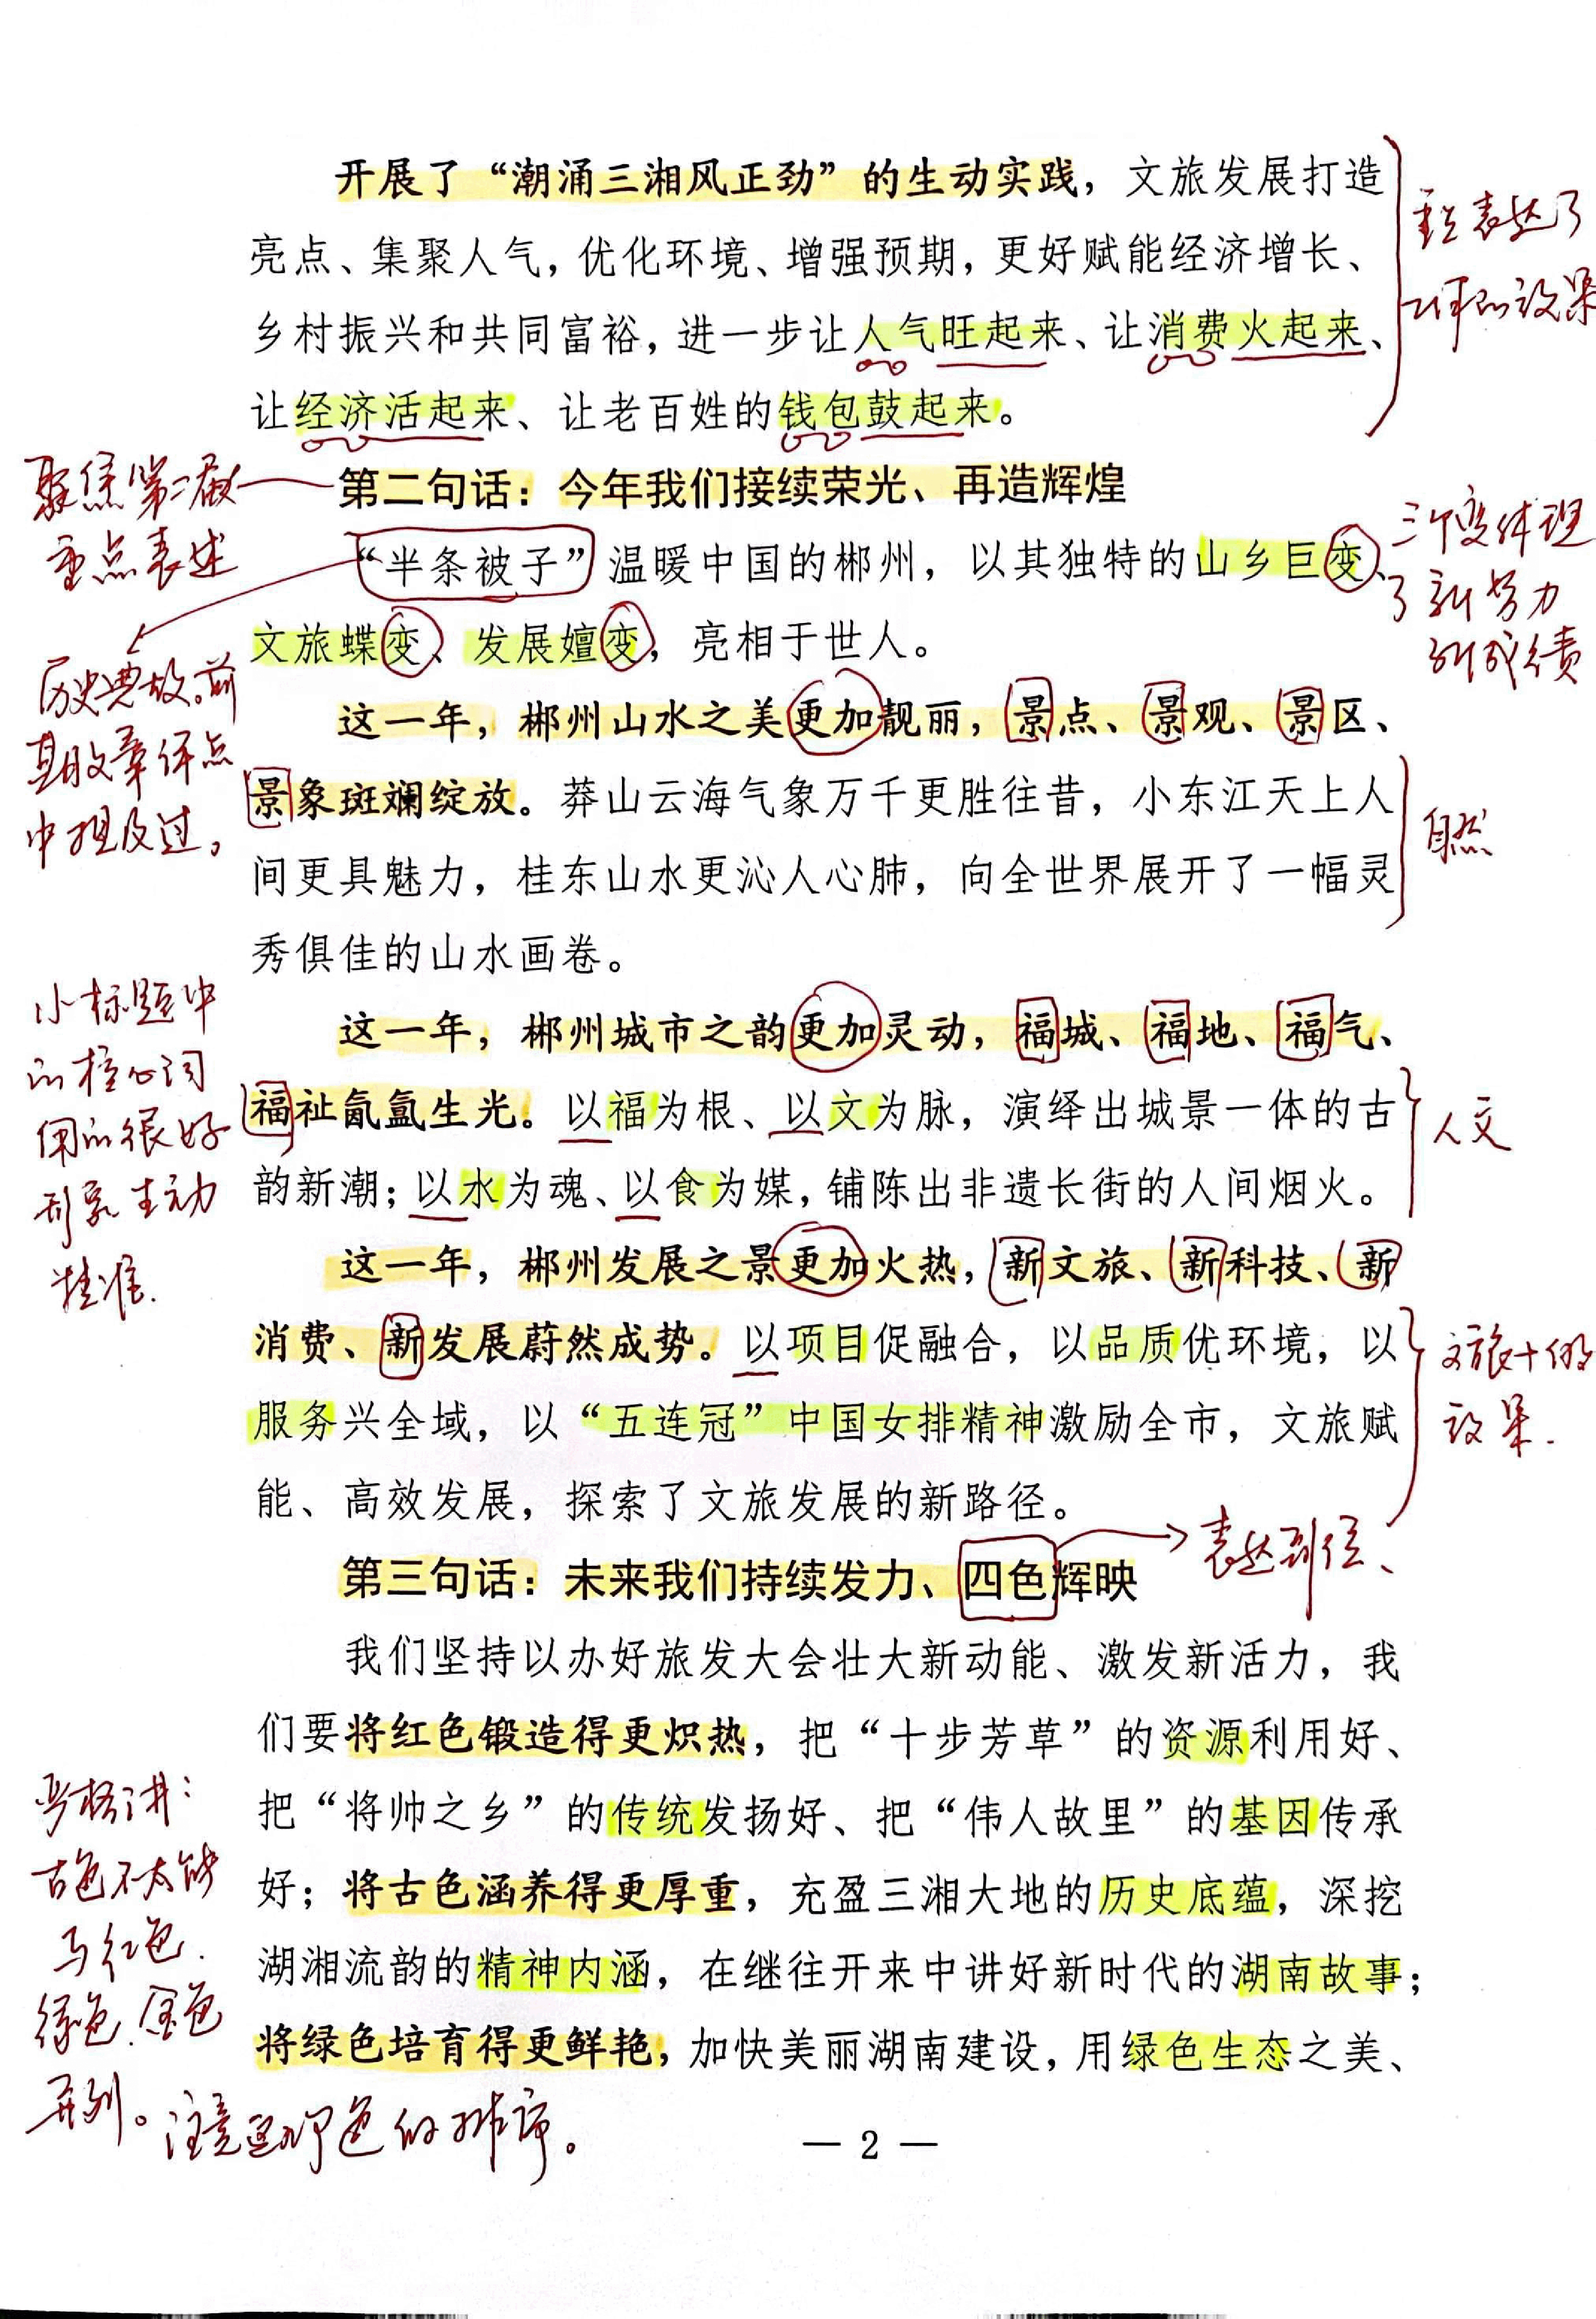 开展了“潮涌三湘风正劲”的生动实践，文旅发展打造
亮点、集聚人气，优化环境、增强预期，更好赋能经济增长、
乡村振兴和共同富裕，进一步让人气旺起来、让消费火起来、
让经济活起来、让老百姓的钱包鼓起来。
重点表达了
工作的效果
第二句话：今年我们接续荣光、再造辉煌
聚焦第二届
重点表述
“半条被子”温暖中国的郴州，以其独特的山乡巨变、
文旅蝶变、发展嬗变，亮相于世人。
三个变体现
了新努力
新成绩
历史典故。前
期文章评点
中提及过。
这一年，郴州山水之美更加靓丽，景点、景观、景区、
景象斑斓绽放。莽山云海气象万千更胜往昔，小东江天上人
间更具魅力，桂东山水更沁人心肺，向全世界展开了一幅灵
秀俱佳的山水画卷。
自然
小标题中
的核心词
用的很好
形象生动
精准.
这一年，郴州城市之韵更加灵动，福城、福地、福气、
福祉氤氲生光。以福为根、以文为脉，演绎出城景一体的古
韵新潮；以水为魂、以食为媒，铺陈出非遗长街的人间烟火。
人文
这一年，郴州发展之景更加火热，新文旅、新科技、新
消费、新发展蔚然成势。以项目促融合，以品质优环境，以
服务兴全域，以“五连冠”中国女排精神激励全市，文旅赋
能、高效发展，探索了文旅发展的新路径。
文旅+的
效果.
第三句话：未来我们持续发力、四色辉映
表达到位、
我们坚持以办好旅发大会壮大新动能、激发新活力，我
们要将红色锻造得更炽热，把“十步芳草”的资源利用好、
把“将帅之乡”的传统发扬好、把“伟人故里”的基因传承
好；将古色涵养得更厚重，充盈三湘大地的历史底蕴，深挖
湖湘流韵的精神内涵，在继往开来中讲好新时代的湖南故事；
将绿色培育得更鲜艳，加快美丽湖南建设，用绿色生态之美、
严格讲：
古色不太能
与红色.
绿色.金色
并列。注意这几个色的排序。
— 2 —